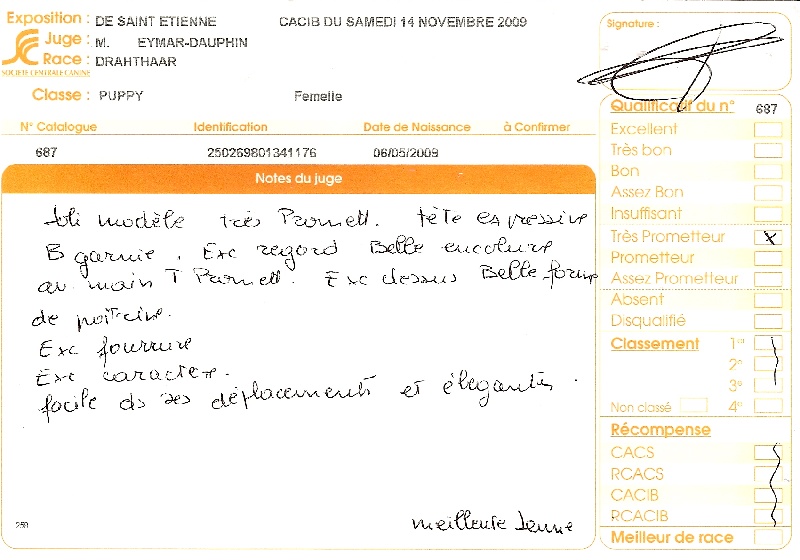 Exposition : DE SAINT ETIENNE CACIB DU SAMEDI 14 NOVEMBRE 2009
Juge : M. EYMAR-DAUPHIN
Race : DRAHTHAAR
SOCIETE CENTRALE CANINE
Classe : PUPPY Femelle
N° Catalogue Identification Date de Naissance à Confirmer
687 250269801341176 06/05/2009
Notes du juge
Joli modèle très Promett. tête expressive
B garnie. Exc regard Belle encolure
av main T Promett. Exc dessus Belle forme
de poitrine.
Exc fourrure
Exc caractère.
facile ds ses déplacements et élégante.
meilleure Jeune
250
Signature :
Qualificatif du n° 687
Excellent
Très bon
Bon
Assez Bon
Insuffisant
Très Prometteur X
Prometteur
Assez Prometteur
Absent
Disqualifié
Classement 1er
2e
3e
Non classé 4e
Récompense
CACS
RCACS
CACIB
RCACIB
Meilleur de race